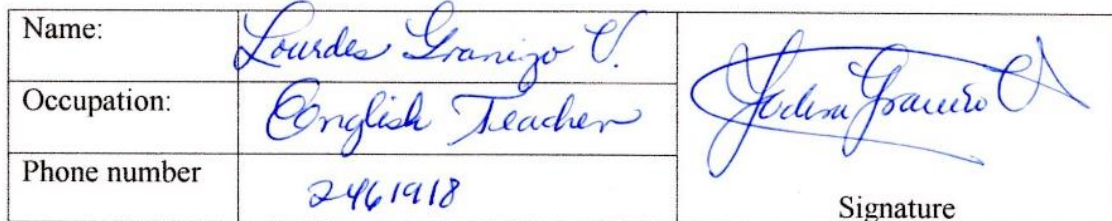 Name: Lourdes Granizo V.
Occupation: English Teacher
Phone number 2461918
Granizo
Signature